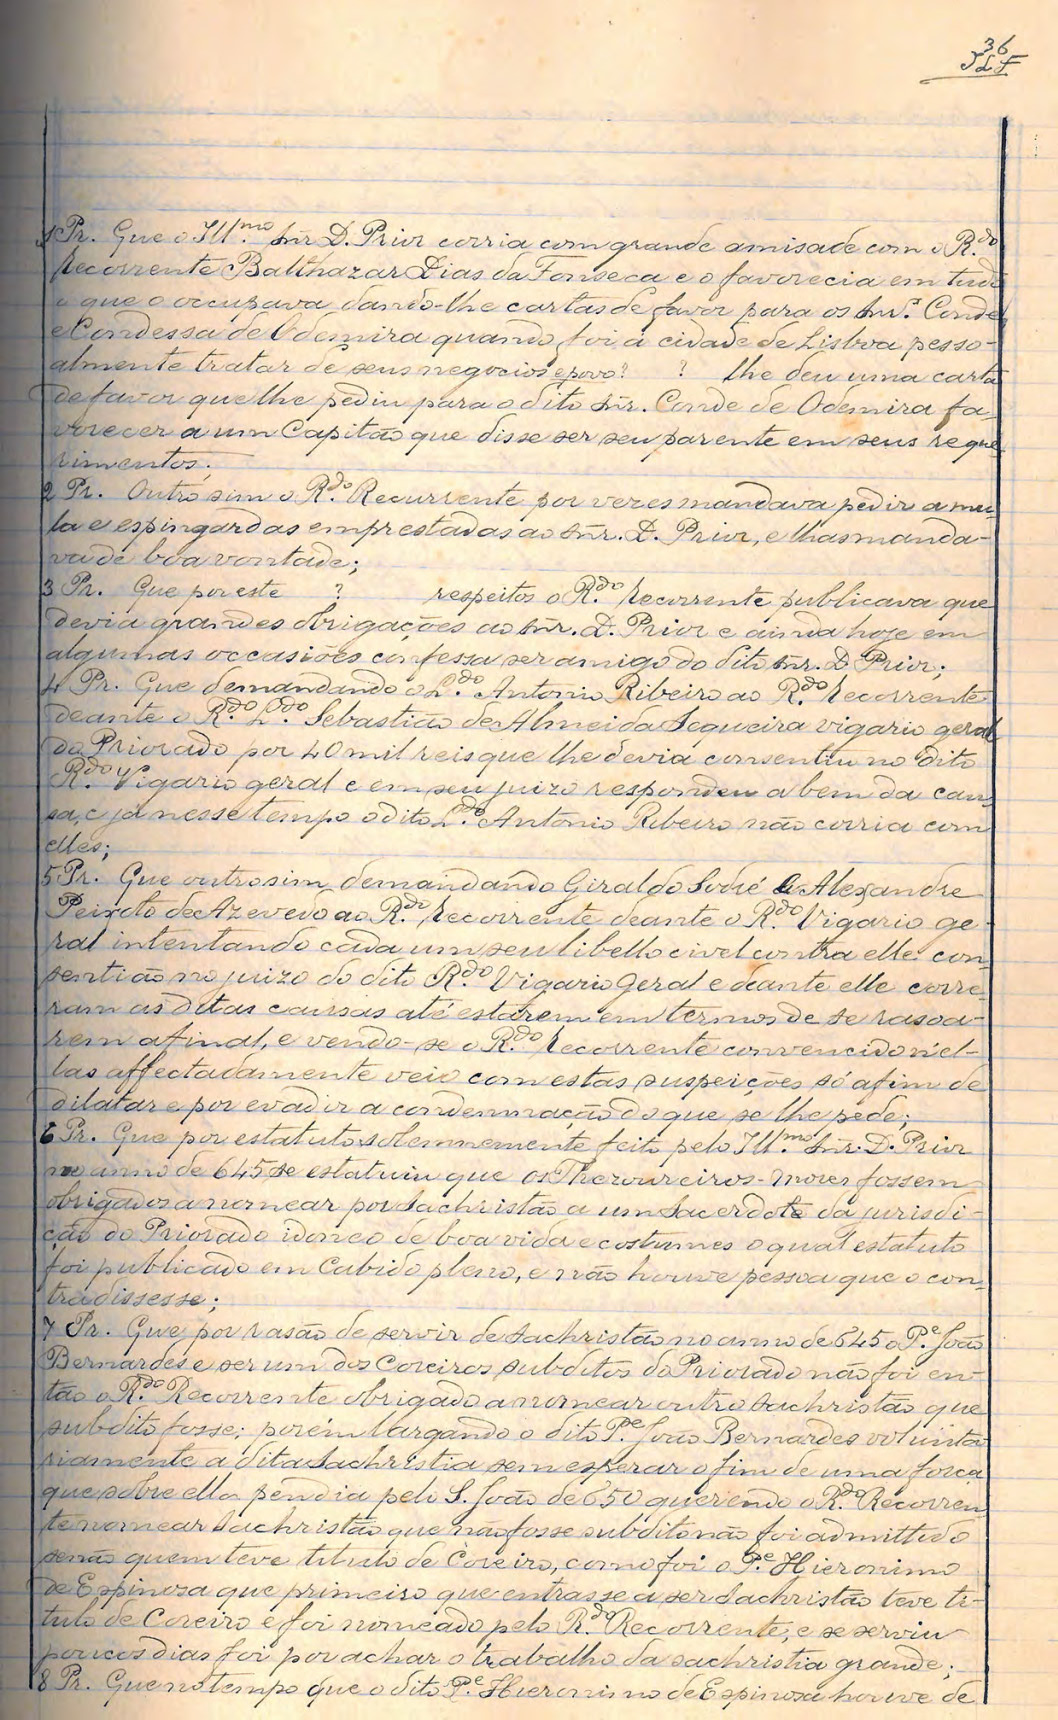 36
1 Pr. Que o Ill.mo Snr D. Prior corria com grande amisade com o R.do
Recorrente Balthazar Dias da Fonseca e o favorecia em tudo
o que o occupava dando-lhe cartas de favor para os Snr.s Conde
e Condessa de Odemira quando foi á cidade de Lisboa pesso-
almente tratar de seus negocios e povo? ? lhe deu uma carta
de favor que lhe pediu para o dito Snr. Conde de Odemira fa-
vorecer a um Capitão que disse ser seu parente em seus reque
rimentos.
2 Pr. Outro sim o R.do Recurrente por vezes mandava pedir a mu-
la e espingardas emprestadas ao Snr. D. Prior, e lhas manda-
va de boa vontade;
3 Pr. Que por este ? respeitos o R.do Recorrente publicava que
devia grandes obrigações ao Snr. D. Prior e ainda hoje em
algumas occasiões confessa ser amigo do dito Snr. D Prior;
4 Pr. Que demandando o L.do Antonio Ribeiro ao R.do Recorrente
deante o R.do L.do Sebastião de Almeida Sequeira vigario geral
do Priorado por 40 mil reis que lhe devia consentiu no dito
R.do Vigario geral e em seu juizo respondeu a bem da cau-
sa, e já nesse tempo o dito L.do Antonio Ribeiro não corria com
elles;
5 Pr. Que outrosim demandando Giraldo Sodré e Alexandre
Peixoto de Azevedo ao R.do Recorrente deante o R.do Vigario ge-
ral intentando cada um seu libello civel contra elle con-
sentião no juizo do dito R.do Vigario Geral e deante elle corre-
ram as ditas causas até estarem em termos de se rasoa-
rem afinal, e vendo-se o R.do Recorrente convencido n'el-
las affectadamente veio com estas suspeições só afim de
dilatar e por evadir a condemnação do que se lhe pede;
6 Pr. Que por estatuto solemnemente feito pelo Ill.mo Snr. D. Prior
no anno de 645 se estatuiu que os Thezoureiros-mores fossem
obrigados a nomear por Sachristão a um Sacerdote da jurisdi-
ção do Priorado idoneo de boa vida e costumes o qual estatuto
foi publicado em Cabido pleno, e não houve pessoa que o con-
tradissesse;
7 Pr. Que por rasão de servir de Sachristão no anno de 645 o P.e João
Bernardes e ser um dos Coreiros subditos do Priorado não foi en-
tão o R.do Recorrente obrigado a nomear outro Sachristão que
subdito fosse; porém largando o dito P.e João Bernardes volunta
riamente a dita Sachristia sem esperar o fim de uma força
que sobre ella pendia pelo S. João de 650 querendo o R.do Recorren
te nomear Sachristão que não fosse subdito não foi admittido
senão quem teve titulo de Coreiro, como foi o P.e Hieronimo
de Espinosa que primeiro que entrasse a ser Sachristão teve ti-
tulo de Coreiro e foi nomeado pelo R.do Recorrente, e se serviu
poucos dias foi por achar o trabalho da sachristia grande;
8 Pr. Que no tempo que o dito P.e Hieronimo de Espinosa houve de